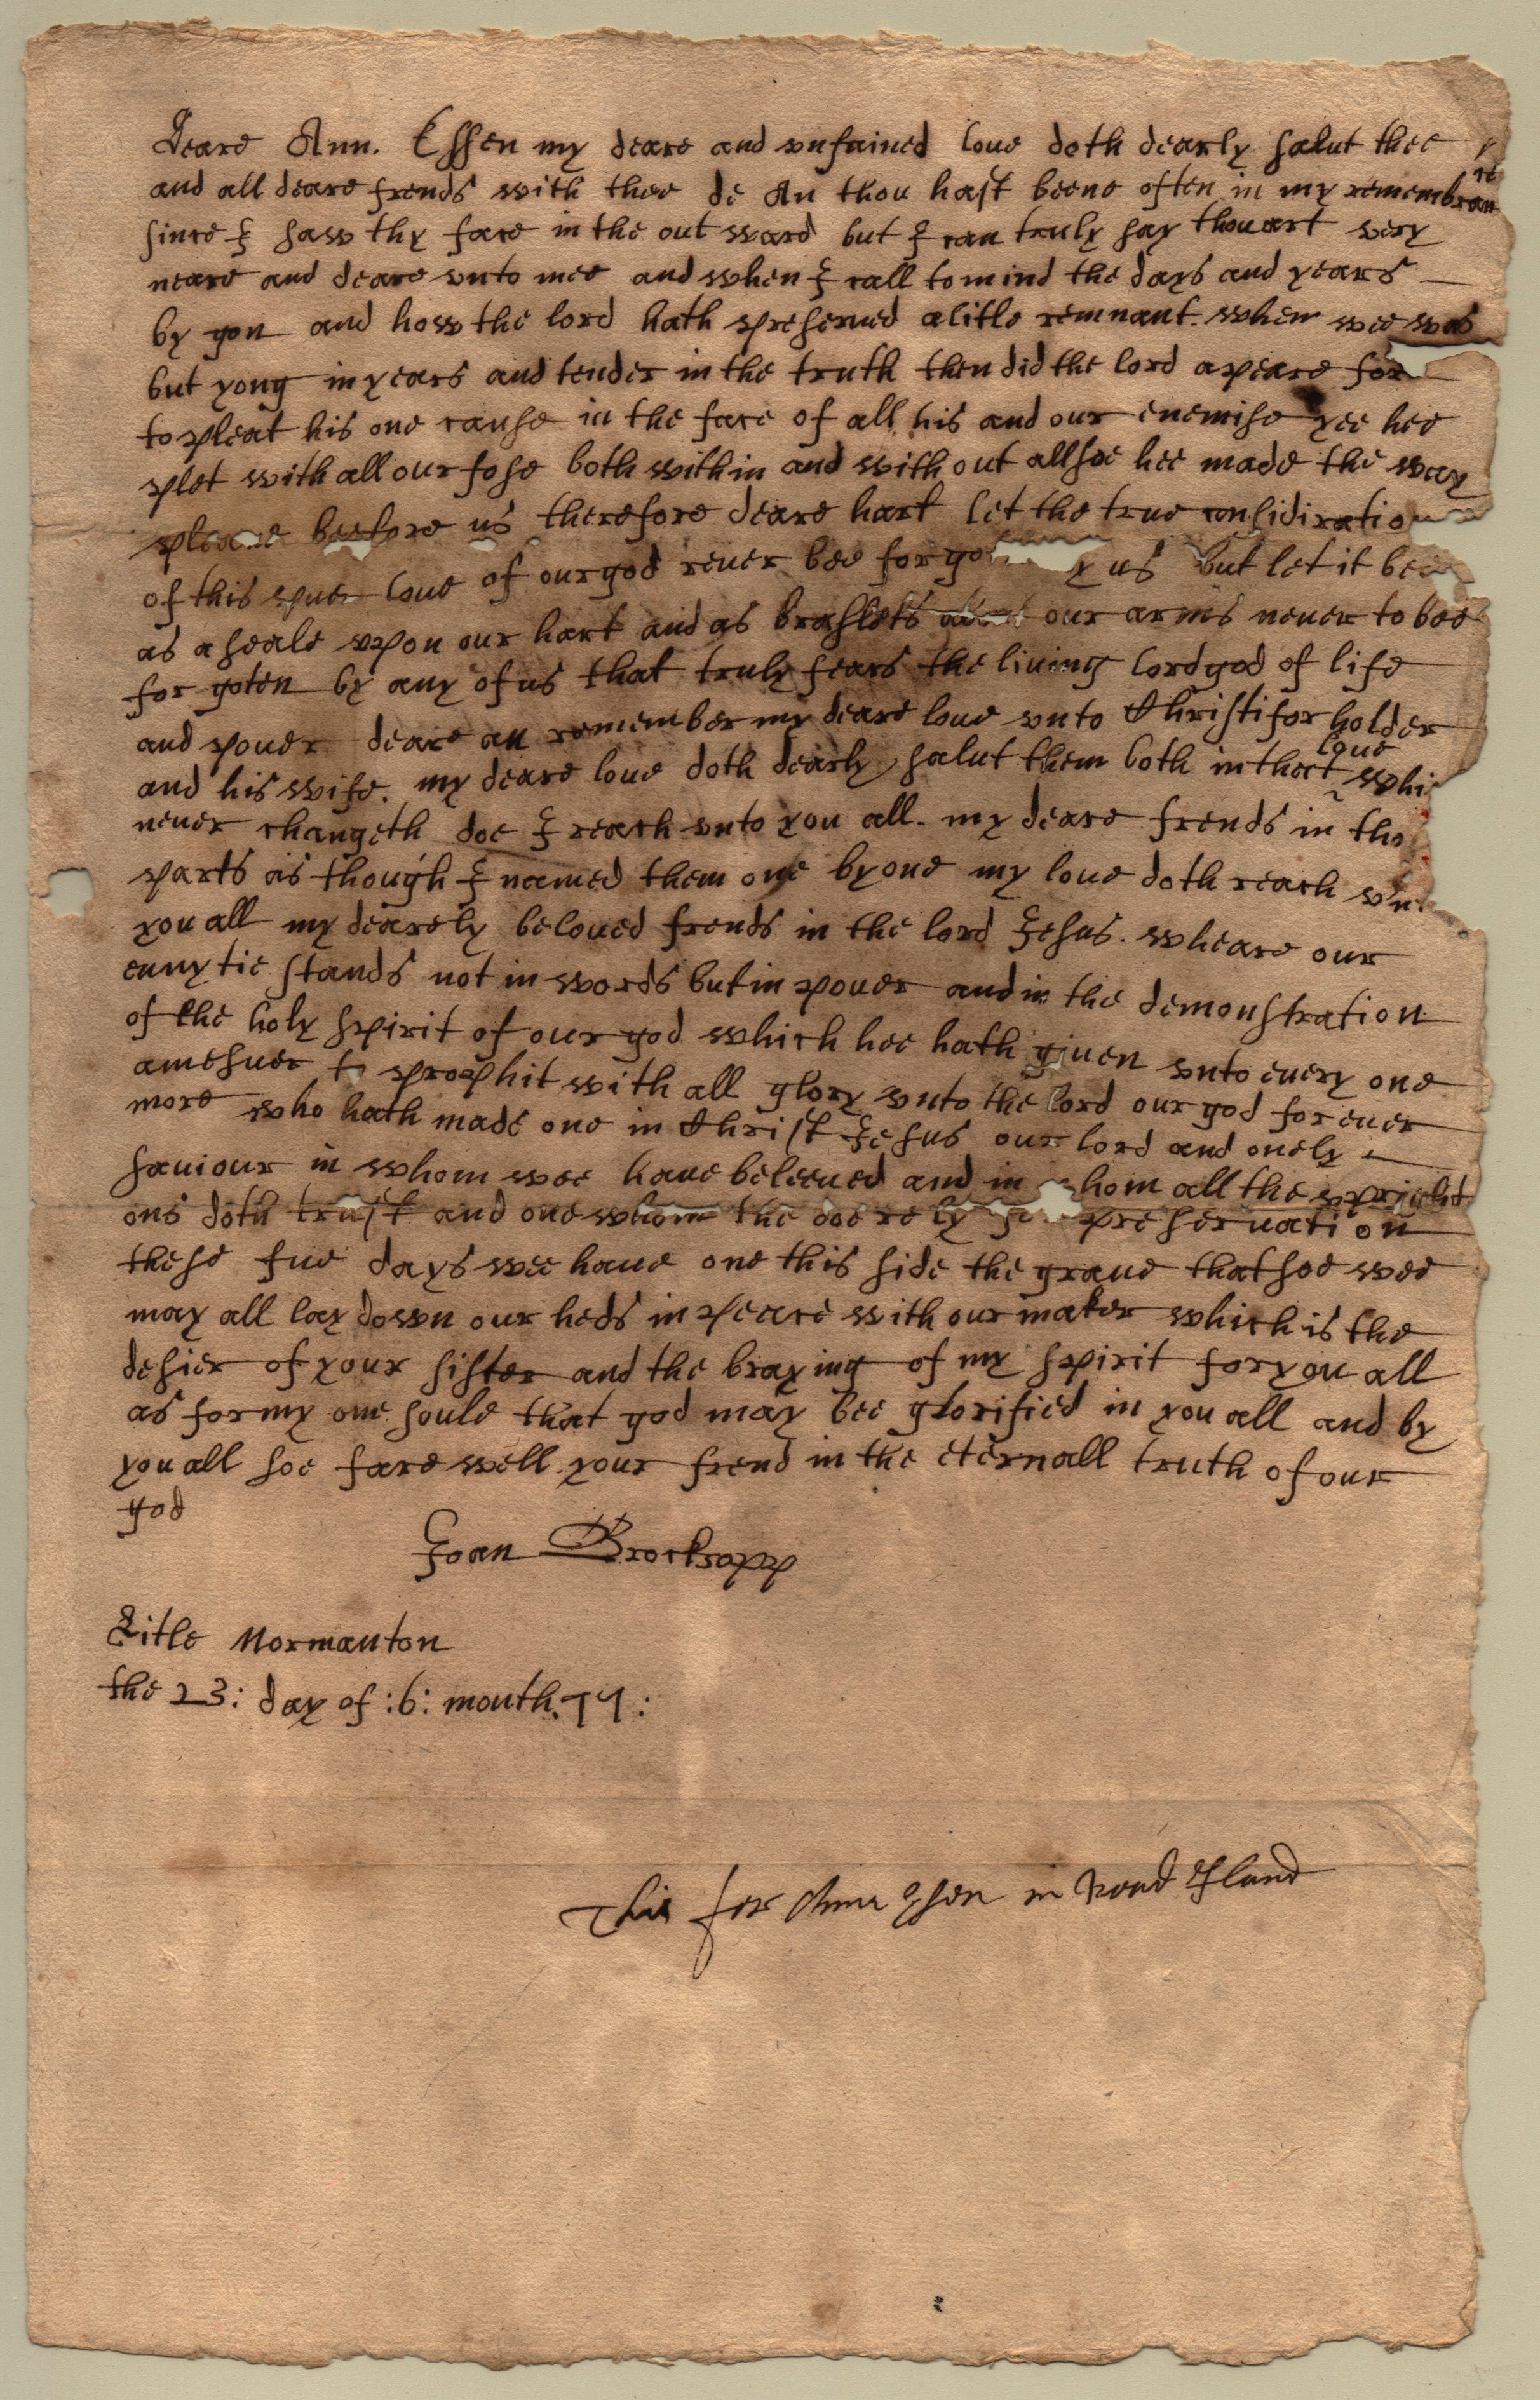 Deare Ann. Essen my deare and vnfained loue doth dearly salut thee
and all deare frends with thee de An thou hast beene often in my remembrance
since I saw thy face in the out ward but I can truly say thou art very
neare and deare vnto mee and when I call to mind the days and years
by gon and how the lord hath preserued a litle remnant. when wee was
but yong in years and tender in the truth then did the lord apeare for
to pleat his one cause in the face of all his and our enemise yee hee
plet with all our fose both with in and with out allsoe hee made the way
pleane beefore us therefore deare hart let the true consideratio
of this puer loue of our god never bee forgo y us but let it bee
as a seale vpon our hart and as braslets about our arms never to bee
for goten by any of us that truly fears the liuing lord god of life
and pouer deare an remember my deare loue vnto Christifor holder
and his wife. my deare loue doth dearly salut them both in thect loue whi
neuer changeth doe I reach vnto you all. my deare frends in tho
parts as though I named them one by one my loue doth reach vn
you all my dearely beloued frends in the lord Jesus. wheare our
eunytie stands not in words but in pouer and in the demonstration
of the holy spirit of our god which hee hath giuen vnto euery one
amesuer to prophit with all glory vnto the lord our god for euer
more who hath made one in Christ Jesus our lord and onely
sauiour in whom wee haue beleeued and in whom all the vpright
ons doth trust and one whom the doe rely preseruation
these fue days wee haue one this side the graue that soe wee
may all lay down our heds in peace with our maker which is the
desier of your sister and the braying of my spirit for you all
as for my one soule that god may bee glorified in you all and by
you all soe fare well your frend in the eternall truth of our
god
Joan Brocksopp
Litle Normanton
the 23: day of :6: month. 77:
This for Anne Esen in Road Island